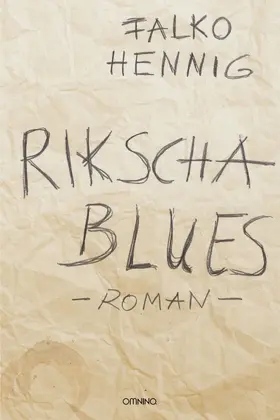 FALKO
HENNIG
RIKSCHA
BLUES
- ROMAN -
OMNINO